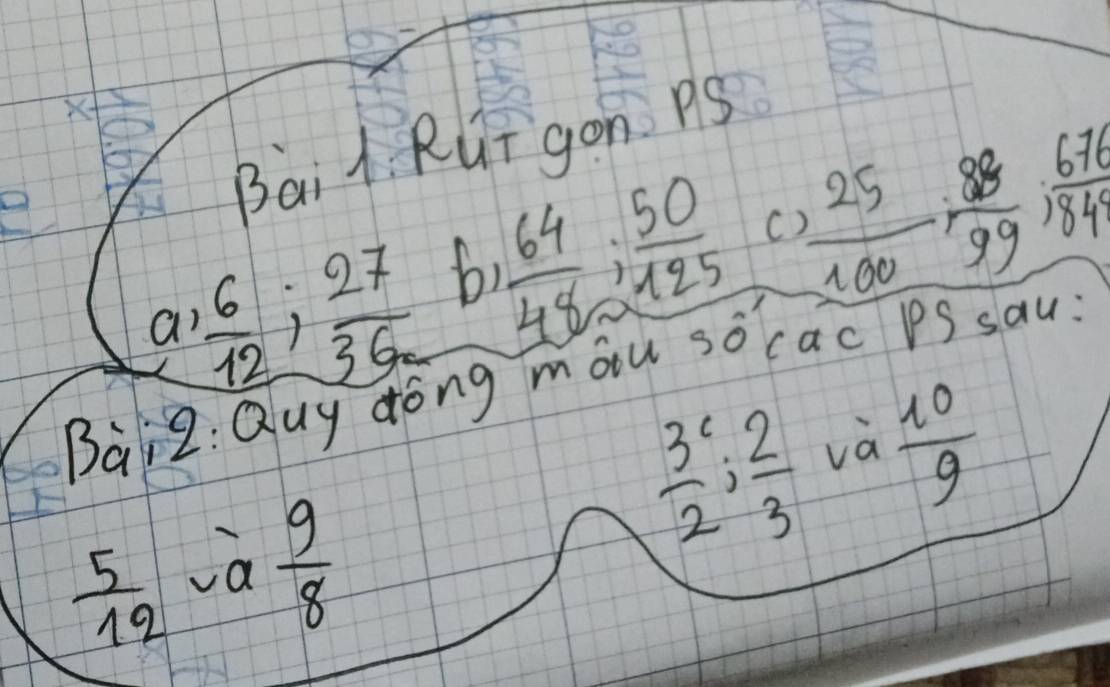 Bài 1. Rút gọn PS
a, 6/12 ; 27/36 b, 64/48 ; 50/125 c, 25/100 ; 88/99 ; 676/849
Bài 2: Quy đồng mẫu số các PS sau:
5/12 và 9/8 3/2 ; 2/3 và 10/9